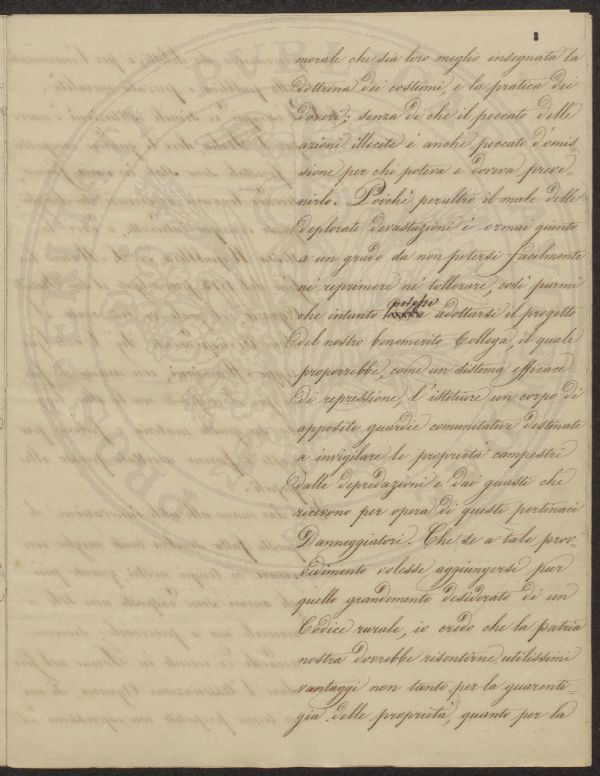 8
morale che sia loro meglio insegnata la
dottrina dei costumi, e la pratica dei
doveri; senza di che il peccato delle
azioni illecite è anche peccato d'omis-
sione per chi poteva e doveva preve-
nirlo. Poichè peraltro il male delle
deplorate devastazioni è ormai giunto
a un grado da non potersi facilmente
nè reprimere nè tollerare, così parmi
potesse
che intanto adottarsi il progetto
del nostro benemerito Collega, il quale
proporrebbe, come un sistema efficace
di repressione, l'istituire un corpo di
apposite guardie comunitative destinate
a invigilare le proprietà campestri
dalle depredazioni e dai guasti che
ricevono per opera di questi pertinaci
Danneggiatori. Che se a tale prov-
vedimento volesse aggiungersi pur
quello grandemente desiderato di un
Codice rurale, io credo che la patria
nostra dovrebbe risentirne utilissimi
vantaggi non tanto per la guarenti-
gia delle proprietà, quanto per la